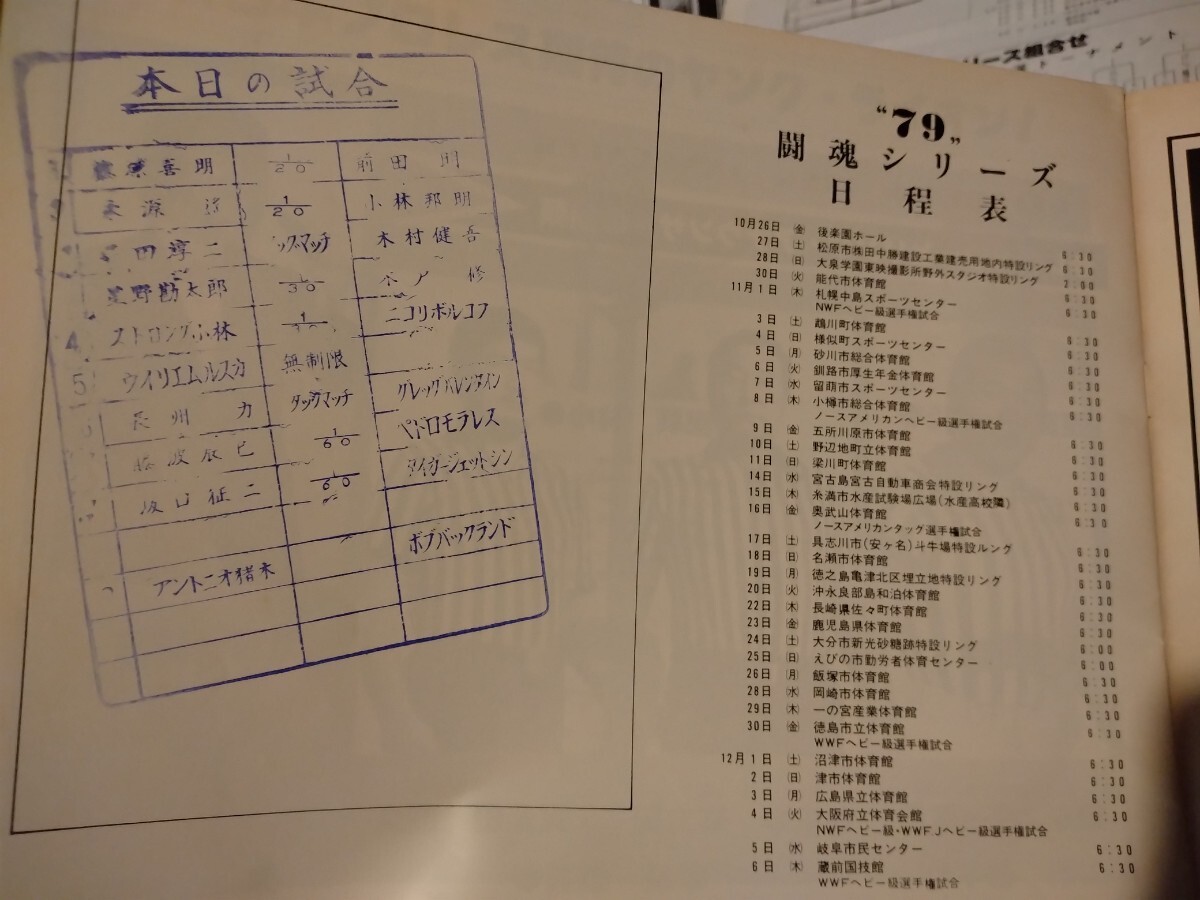 本日の試合
喜明 1/20 前田 明
永源 1/20 小林邦明
田淳二 タッグマッチ 木村健吾
星野勘太郎 1/30 木戸 修
4 ストロング小林 ニコリボルコフ
5 ウイリエムルスカ 無制限
長州 力 タッグマッチ グレッグバレンタイン
藤波辰巳 1/60 ペドロモラレス
坂口征二 1/60 タイガージェットシン
アントニオ猪木 ボブバックランド
リーズ組合せ
“79”
闘魂シリーズ
日程表
10月26日 ㊎ 後楽園ホール 6:30
27日 ㊏ 松原市㈱田中勝建設工業建売用地内特設リング 6:30
28日 ㊐ 大泉学園東映撮影所野外スタジオ特設リング 2:00
30日 ㊋ 能代市体育館 6:30
11月1日 ㊍ 札幌中島スポーツセンター 6:30
NWFヘビー級選手権試合
3日 ㊏ 鵡川町体育館 6:30
4日 ㊐ 様似町スポーツセンター 6:30
5日 ㊊ 砂川市総合体育館 6:30
6日 ㊋ 釧路市厚生年金体育館 6:30
7日 ㊌ 留萌市スポーツセンター 6:30
8日 ㊍ 小樽市総合体育館 6:30
ノースアメリカンヘビー級選手権試合
9日 ㊎ 五所川原市体育館 6:30
10日 ㊏ 野辺地町立体育館 6:30
11日 ㊐ 梁川町体育館 6:30
14日 ㊌ 宮古島宮古自動車商会特設リング 6:30
15日 ㊍ 糸満市水産試験場広場(水産高校隣) 6:30
16日 ㊎ 奥武山体育館 6:30
ノースアメリカンタッグ選手権試合
17日 ㊏ 具志川市(安ヶ名)斗牛場特設ルング 6:30
18日 ㊐ 名瀬市体育館 6:30
19日 ㊊ 徳之島亀津北区埋立地特設リング 6:30
20日 ㊋ 沖永良部島和泊体育館 6:30
22日 ㊍ 長崎県佐々町体育館 6:30
23日 ㊎ 鹿児島県体育館 6:30
24日 ㊏ 大分市新光砂糖跡特設リング 6:00
25日 ㊐ えびの市勤労者体育センター 6:00
26日 ㊊ 飯塚市体育館 6:30
28日 ㊌ 岡崎市体育館 6:30
29日 ㊍ 一の宮産業体育館 6:30
30日 ㊎ 徳島市立体育館 6:30
WWFヘビー級選手権試合
12月1日 ㊏ 沼津市体育館 6:30
2日 ㊐ 津市体育館 6:30
3日 ㊊ 広島県立体育館 6:30
4日 ㊋ 大阪府立体育会館 6:30
NWFヘビー級・WWFJヘビー級選手権試合
5日 ㊌ 岐阜市民センター 6:30
6日 ㊍ 蔵前国技館 6:30
WWFヘビー級選手権試合